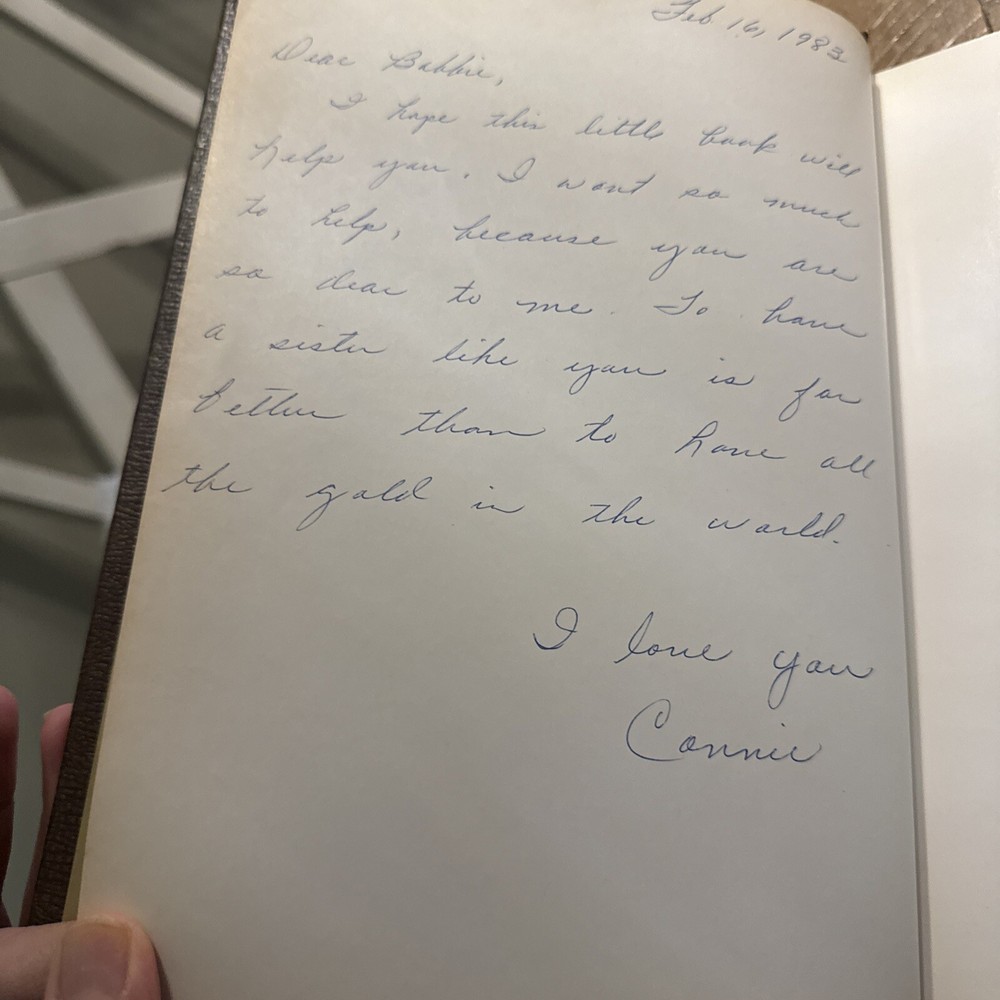 Feb 16, 1983
Dear Bobbie,
I hope this little book will
help you. I want so much
to help, because you are
so dear to me. To have
a sister like you is far
better than to have all
the gold in the world.
I love you
Connie